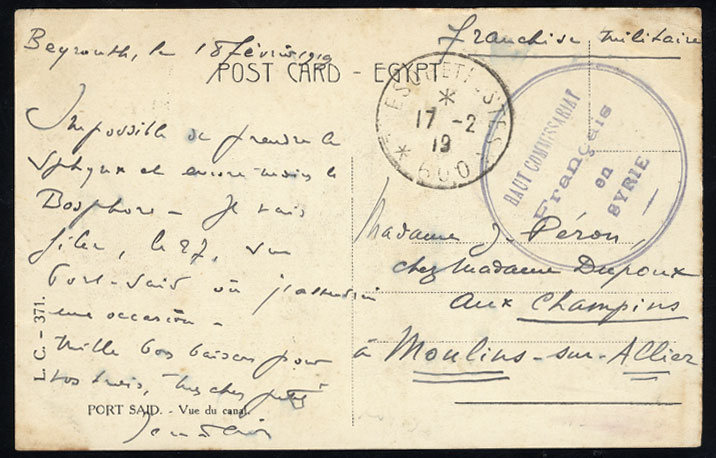 Beyrouth, le 18 février 1919
Franchise militaire
POST CARD - EGYPT
Impossible de prendre le
Sphynx et encore moins le
Bosphore - Je vais
filer, le 27, sur
Port-Saïd où j'attendrai
une occasion -
Mille bons baisers pour
vos trois, mes chers petits
TRÉSOR ET POSTES
*
17 -2
19
* 600 *
HAUT COMMISSARIAT
Français
en
SYRIE
Madame J. Péron,
chez Madame Dupoux
aux Champins
à Moulins-sur-Allier
L. C. - 371.
PORT SAID. - Vue du canal.